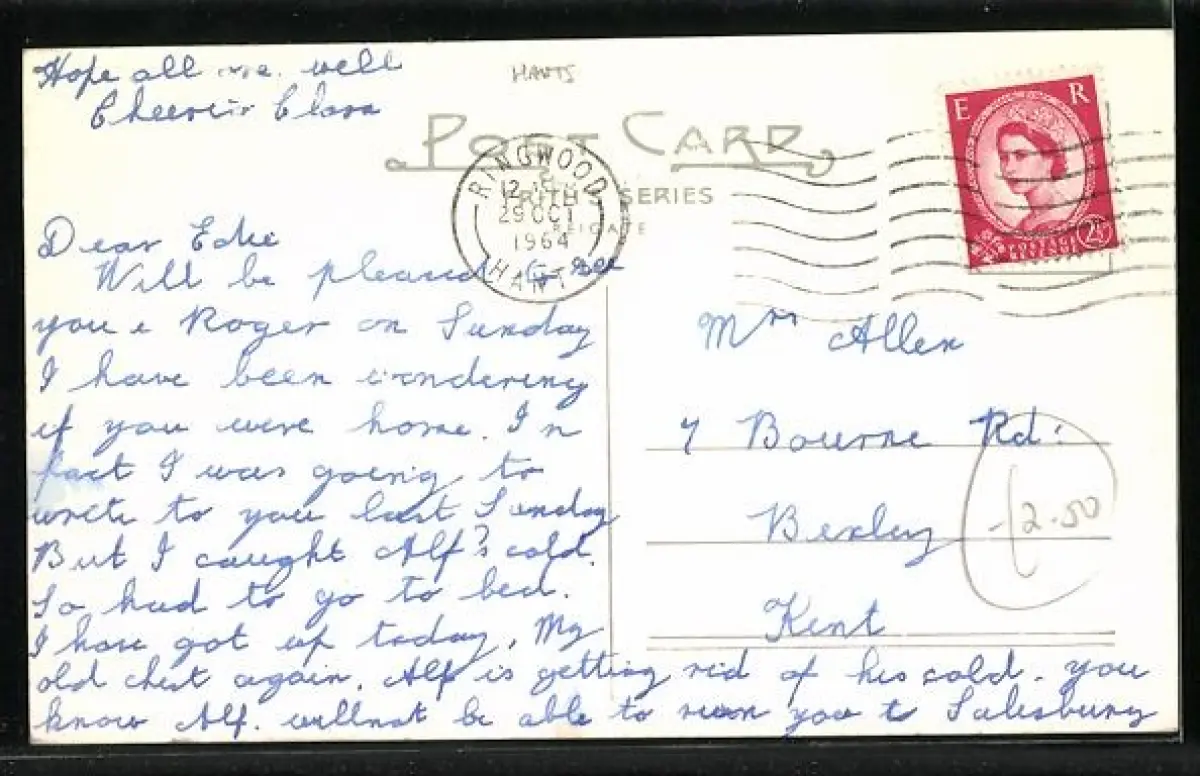 Hope all are well
Cheerio Clara
HANTS
POST CARD
FRITH'S SERIES
REIGATE
RINGWOOD
12
29 OCT
1964
HANTS
E R
POSTAGE
REVENUE
2½
Dear Edie
Will be pleased to see
you & Roger on Sunday
I have been wondering
if you were home. In
fact I was going to
write to you last Sunday
But I caught Alf's cold.
So had to go to bed.
I have got up today. My
old chest again. Alf is getting rid of his cold. you
know Alf. will not be able to run you to Salesbury
Mrs Allen
7 Bourne Rd:
Bexley
Kent
2.50